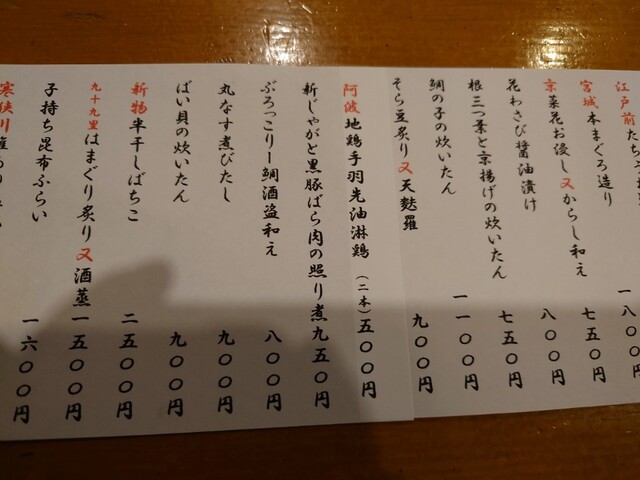 江戸前たち
宮城本まぐろ造り 一八〇〇円
京菜花お浸し又からし和え 七五〇円
花わさび醤油漬け 八〇〇円
根三つ葉と京揚げの炊いたん 七五〇円
鯛の子の炊いたん 一一〇〇円
そら豆炙り又天麩羅 九〇〇円
阿波地鶏手羽先油淋鶏（二本）五〇〇円
新じゃがと黒豚ばら肉の照り煮九五〇円
ぶろっこりー鯛酒盗和え 八〇〇円
丸なす煮びたし 九〇〇円
ばい貝の炊いたん 九〇〇円
新物半干しばちこ 二五〇〇円
九十九里はまぐり炙り又酒蒸一五〇〇円
子持ち昆布ふらい 一六〇〇円
寒狭川